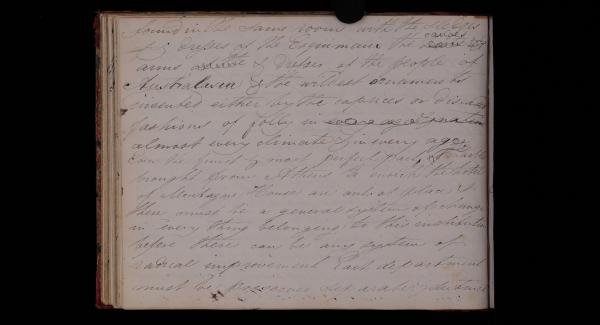 found in the same room with the sledges
& dresses of the Esquimaux the canoes
arms & dresses of the people of
Australasia & the wildest ornaments
invented either by the caprices or
fashions of folly in
almost every climate & in every age
Even the finest & most perfect
brought from Athens to enrich the
of Montagu House are out of place &
there must be a general system of change
in every thing belonging to this institution
before there can be any system of
radical improvement Each department
must be